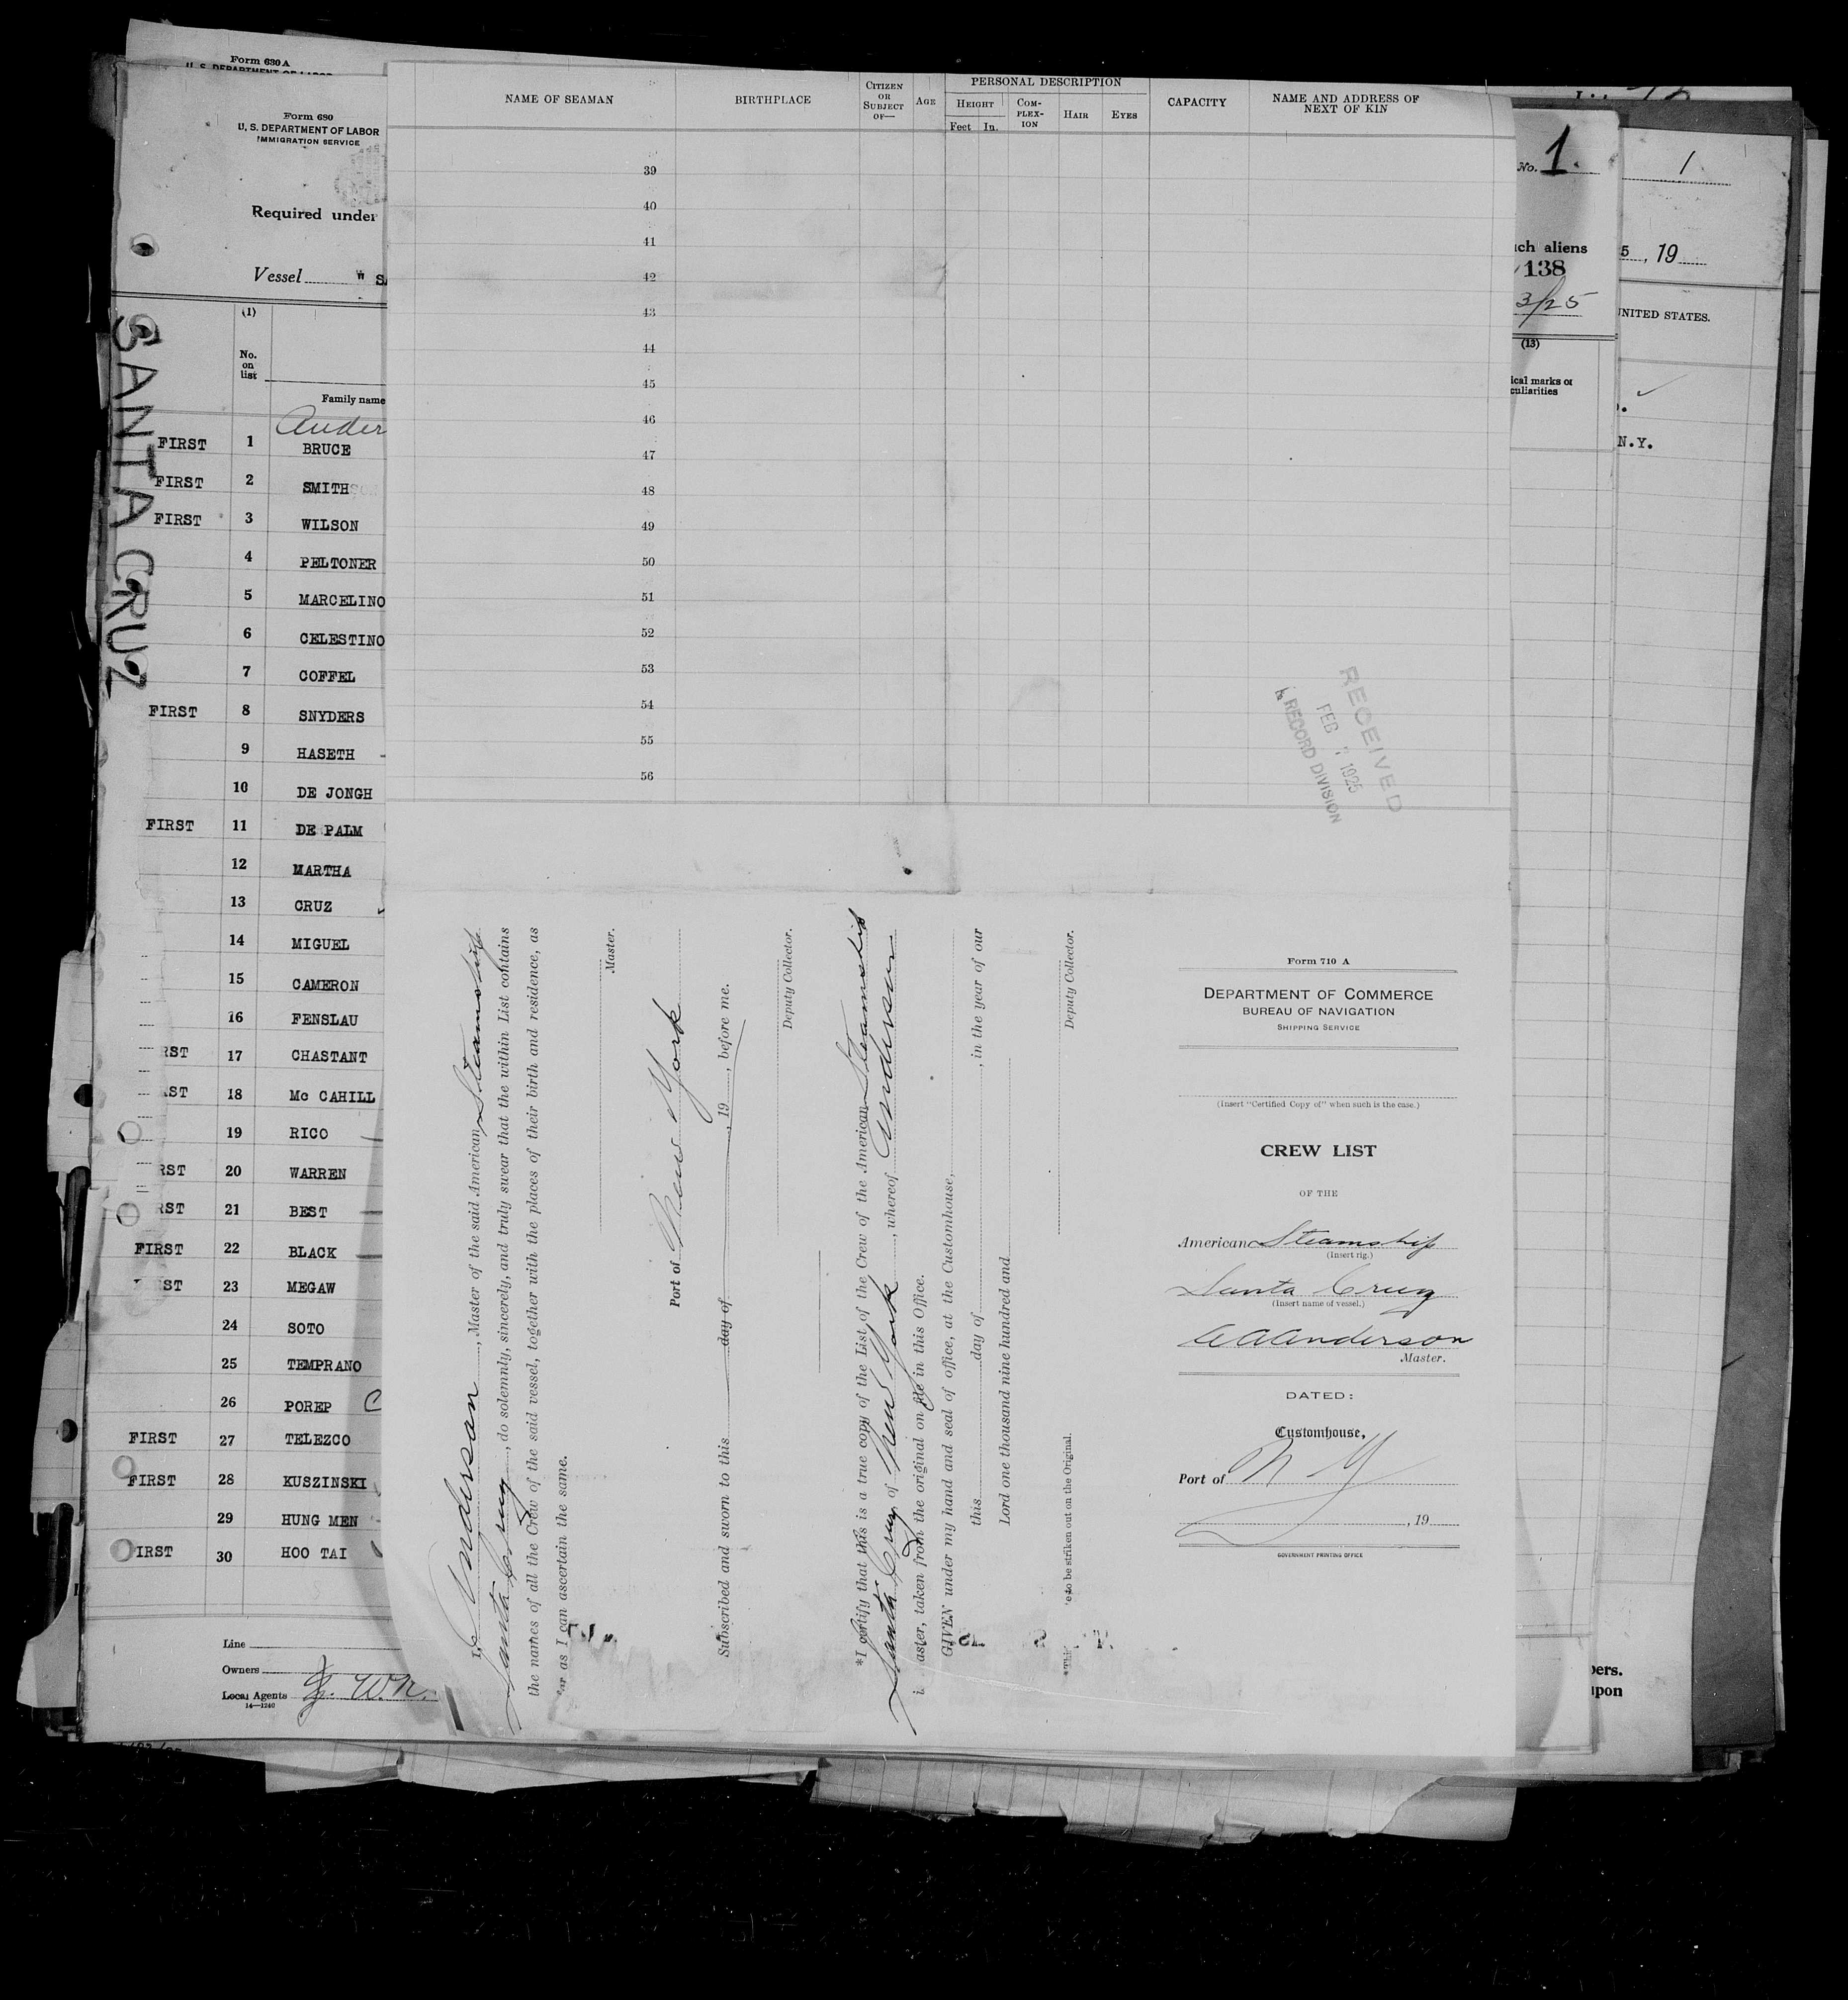 Form 630 A
U. S. DEPARTMENT OF LABOR
Form 680
U. S. DEPARTMENT OF LABOR
IMMIGRATION SERVICE
Required under
Vessel "
SANTA CRUZ
(1)
No. on list
Family name
Ander
FIRST 1 BRUCE
FIRST 2 SMITH
FIRST 3 WILSON
4 PELTONER
5 MARCELINO
6 CELESTINO
7 COFFEL
FIRST 8 SNYDERS
9 HASETH
10 DE JONGH
FIRST 11 DE PALM
12 MARTHA
13 CRUZ
14 MIGUEL
15 CAMERON
16 FENSLAU
RST 17 CHASTANT
ST 18 Mc CAHILL
19 RICO
RST 20 WARREN
RST 21 BEST
FIRST 22 BLACK
ST 23 MEGAW
24 SOTO
25 TEMPRANO
26 POREP
FIRST 27 TELEZCO
FIRST 28 KUSZINSKI
29 HUNG MEN
IRST 30 HOO TAI
Line
Owners
Local Agents
14—1240
NAME OF SEAMAN
BIRTHPLACE
CITIZEN OR SUBJECT OF—
AGE
PERSONAL DESCRIPTION
HEIGHT
Feet In.
COM-PLEX-ION
HAIR
EYES
CAPACITY
NAME AND ADDRESS OF NEXT OF KIN
39
40
41
42
43
44
45
46
47
48
49
50
51
52
53
54
55
56
RECEIVED
FEB 7 1925
RECORD DIVISION
I, Anderson, Master of the said American Steamship
Santa Cruz, do solemnly, sincerely, and truly swear that the within List contains
the names of all the Crew of the said vessel, together with the places of their birth and residence, as
far as I can ascertain the same.
Master.
Port of New York
Subscribed and sworn to this day of , 19 , before me.
Deputy Collector.
*I certify that this is a true copy of the List of the Crew of the American Steamship
Santa Cruz, of New York, whereof Anderson
aster, taken from the original on file in this Office.
GIVEN under my hand and seal of office, at the Customhouse,
this day of , in the year of our
Lord one thousand nine hundred and
Deputy Collector.
to be striken out on the Original.
Form 710 A
DEPARTMENT OF COMMERCE
BUREAU OF NAVIGATION
SHIPPING SERVICE
(Insert "Certified Copy of" when such is the case.)
CREW LIST
OF THE
American Steamship
(Insert rig.)
Santa Cruz
(Insert name of vessel.)
A A Anderson
Master.
DATED:
Customhouse,
Port of N Y
, 19
GOVERNMENT PRINTING OFFICE
No. 1.
uch aliens
138
3/25
(13)
ical marks or
culiarities
1
5, 19
UNITED STATES.
N.Y.
pers.
upon